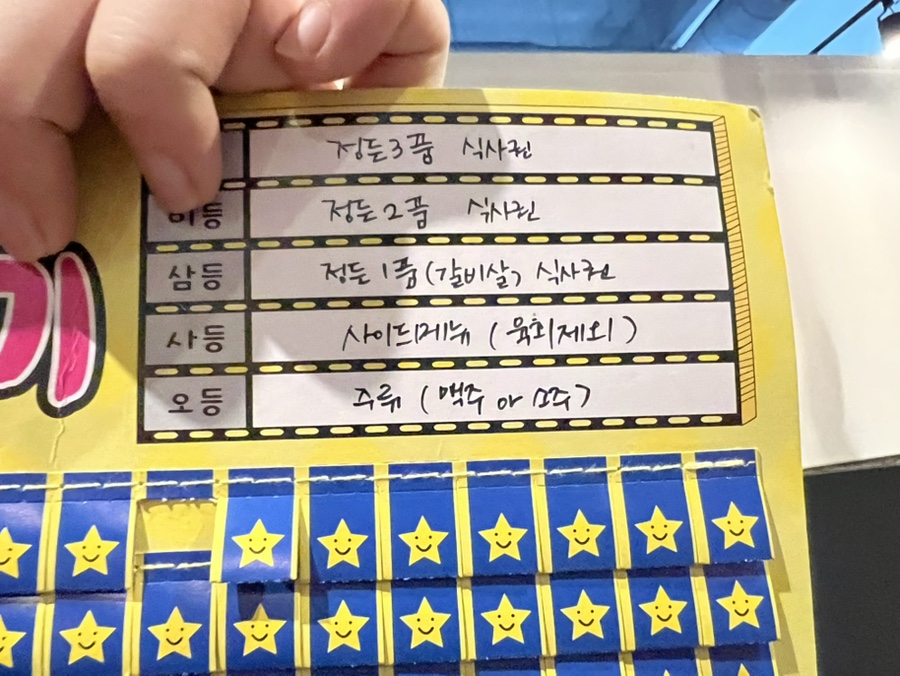 정든3품 식사권
이등 정든2품 식사권
삼등 정든1품(갈비살) 식사권
사등 사이드메뉴 (육회제외)
오등 주류 (맥주 or 소주)
기